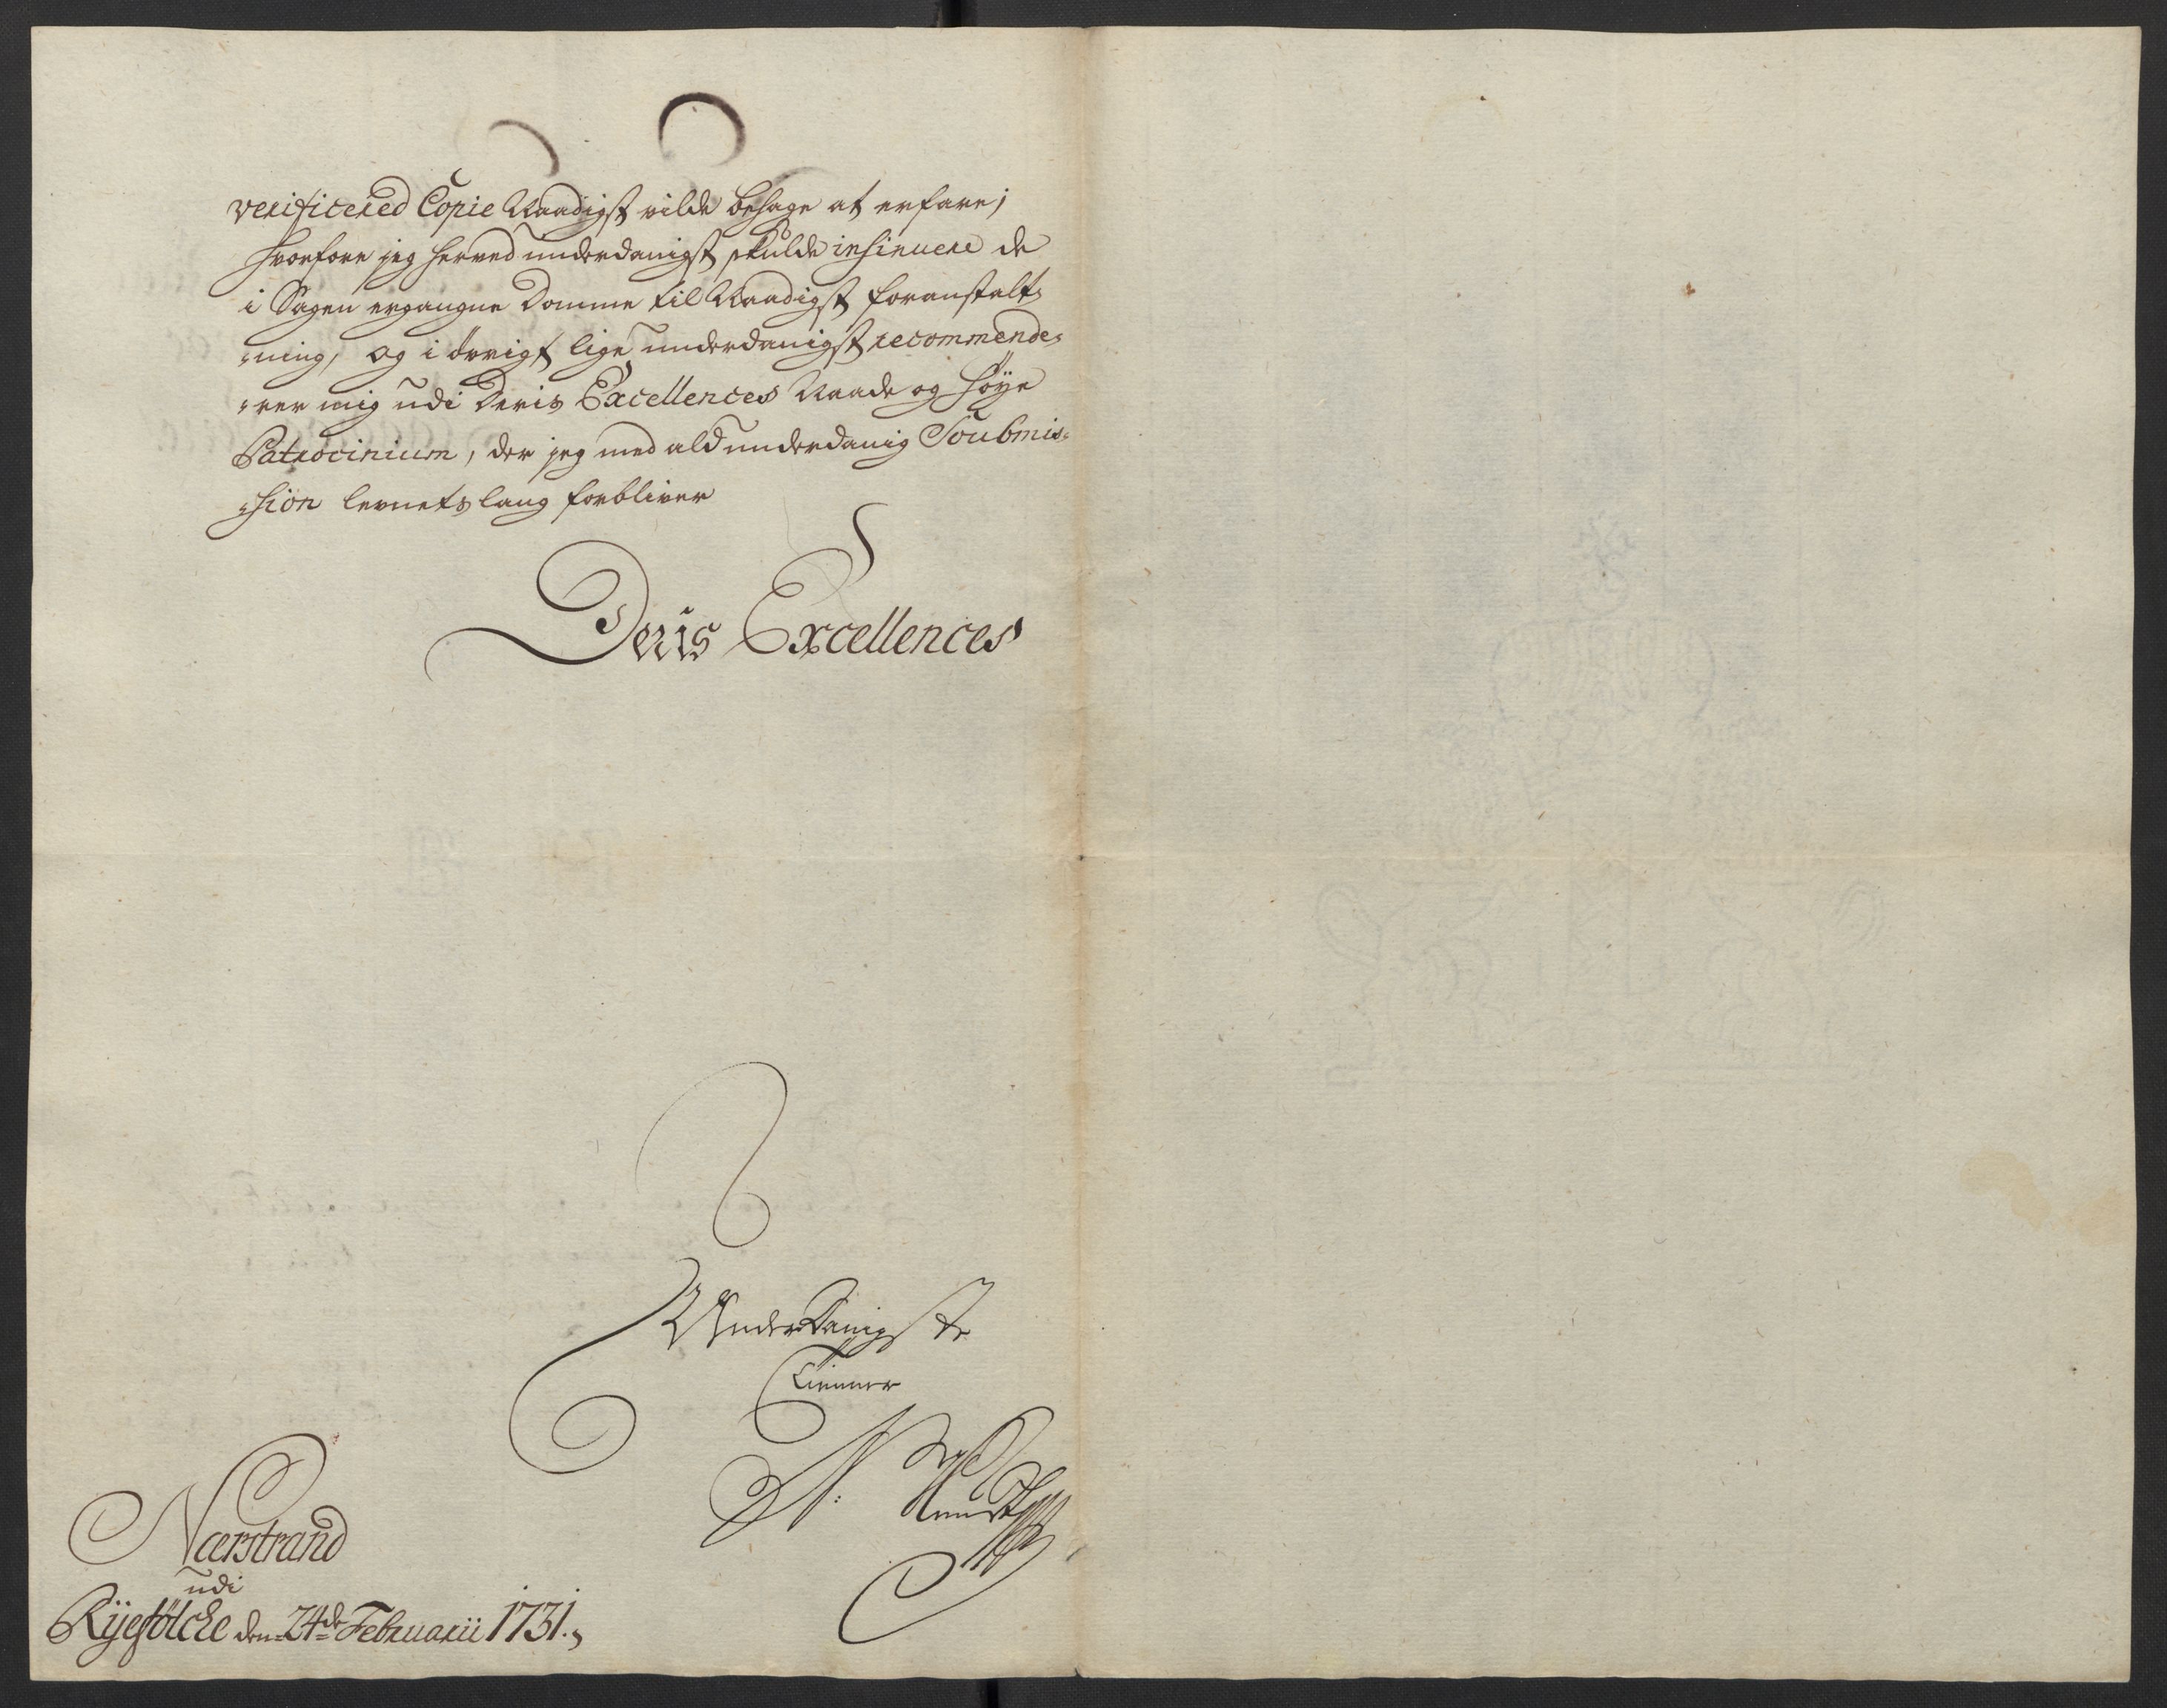 verificered Copie Naadigst vilde behage at erfare;
hvorfore jeg herved underdanigst skulde insinuere de
i Sagen ergangne Domme til Naadigst foranstalt⸗
⸗ning, og i øvrigt lige underdanigst recommende⸗
⸗rer mig udi Deris Excellences Naade og høye
Patrocinium, der jeg med ald underdanig Soubmis⸗
⸗sion levnets lang forbliver
Deris Excellences
Underdanigste
Tienner
N:
Nærstrand
udi
Ryefølcke den 24de Februarii 1731.